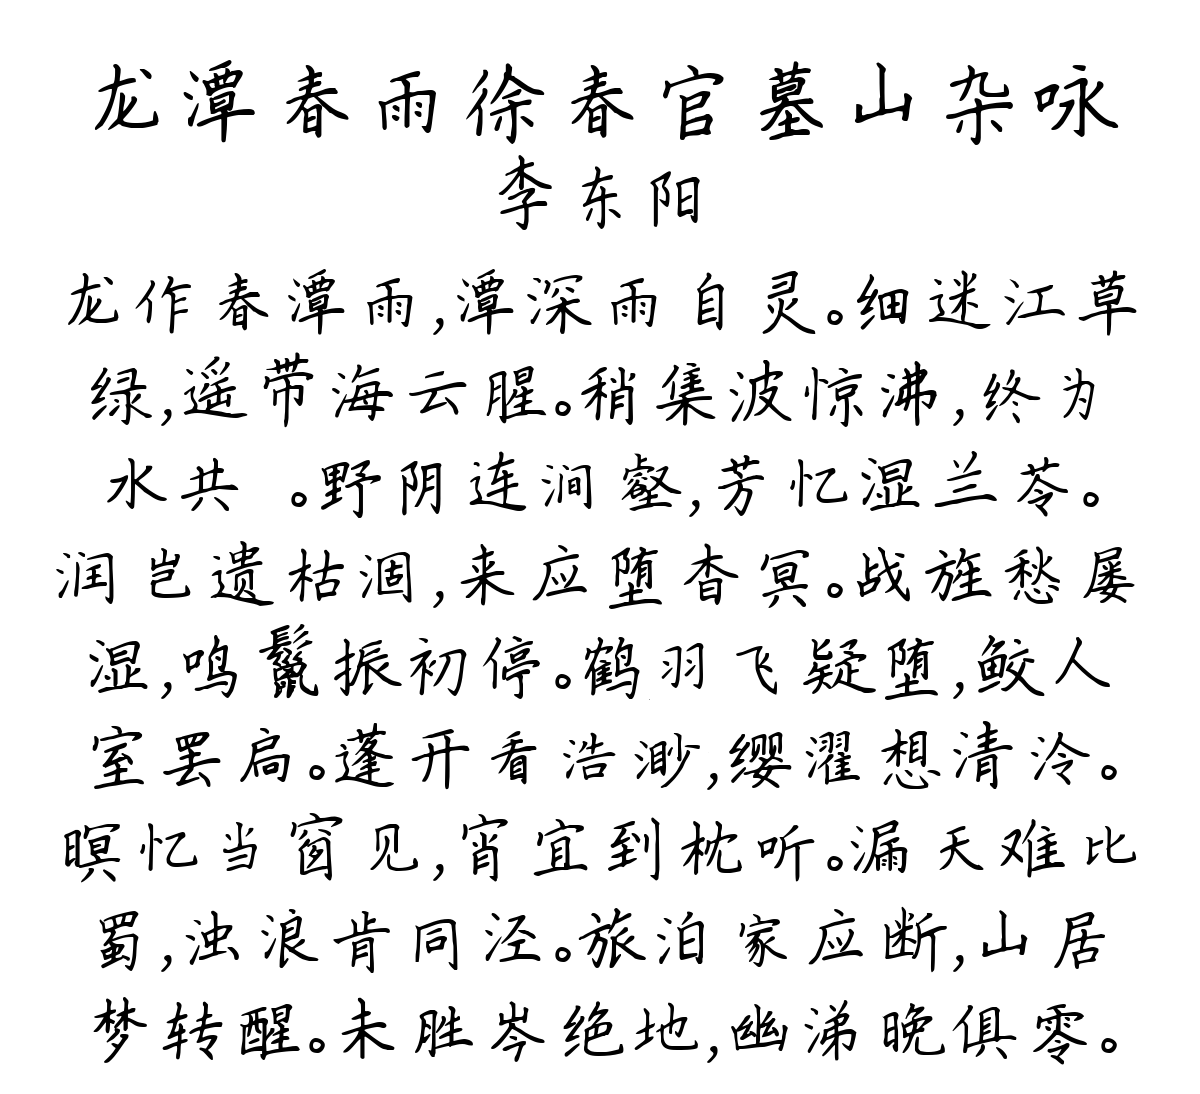 龙潭春雨徐春官墓山杂咏
李东阳
龙作春潭雨,潭深雨自灵。细迷江草
绿,遥带海云腥。稍集波惊沸,终为
水共 。野阴连涧壑,芳忆湿兰苓。
润岂遗枯涸,来应堕杳冥。战旌愁屡
湿,鸣鬣振初停。鹤羽飞疑堕,鲛人
室罢扃。蓬开看浩渺,缨濯想清泠。
暝忆当窗见,宵宜到枕听。漏天难比
蜀,浊浪肯同泾。旅泊家应断,山居
梦转醒。未胜岑绝地,幽涕晚俱零。